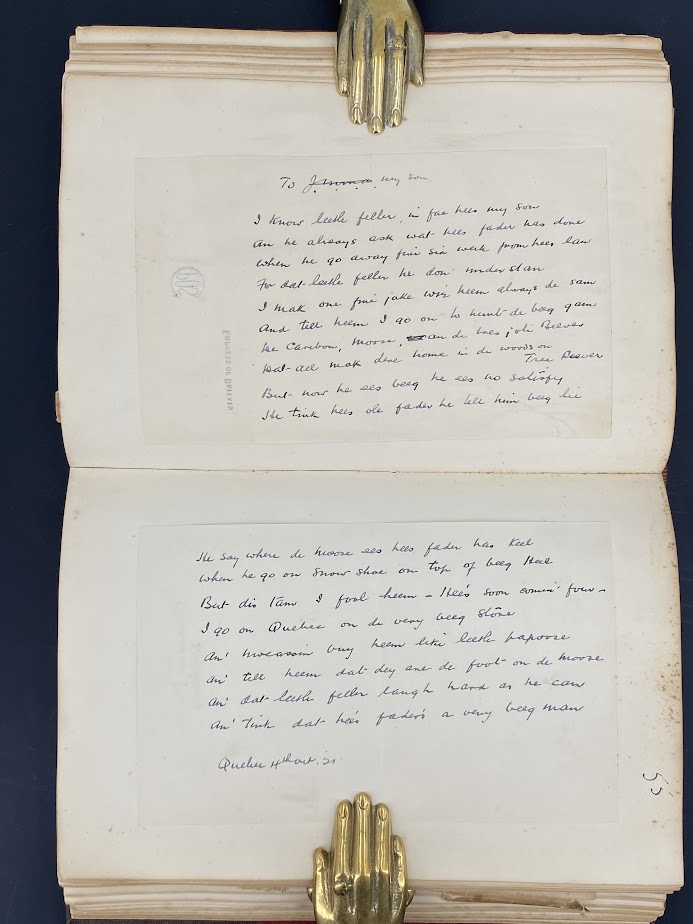 To my son
I know leetle feller, in fac hees my son
an he always ask wat hees fader has done
when he go away five six week from hees lan
For dat leetle feller he don' understan
I mak one fine joke wiz heem always de sam
And tell heem I go on to hunt de beeg gam
de Caribou, moose, an de tres joli Beever
dat all mak dere home in de woods on
Tree Reever
But now he ees beeg he ees no satisfy
He tink hees ole fader he tell him beeg lie
EMPRESS OF BRITAIN
He say where de moose ees hees fader has keel
when he go on snow shoe on top of beeg Heel
But dis tam I fool heem - Hee's soon comin' four -
I go on Quebec on de very beeg store
an' moccassin buy heem like leetle papoose
an' tell heem dat dey are de foot on de moose
an' dat leetle feller laugh hard as he can
an' tink dat hee's fader's a very beeg man
Quebec 4th Oct. '21
55